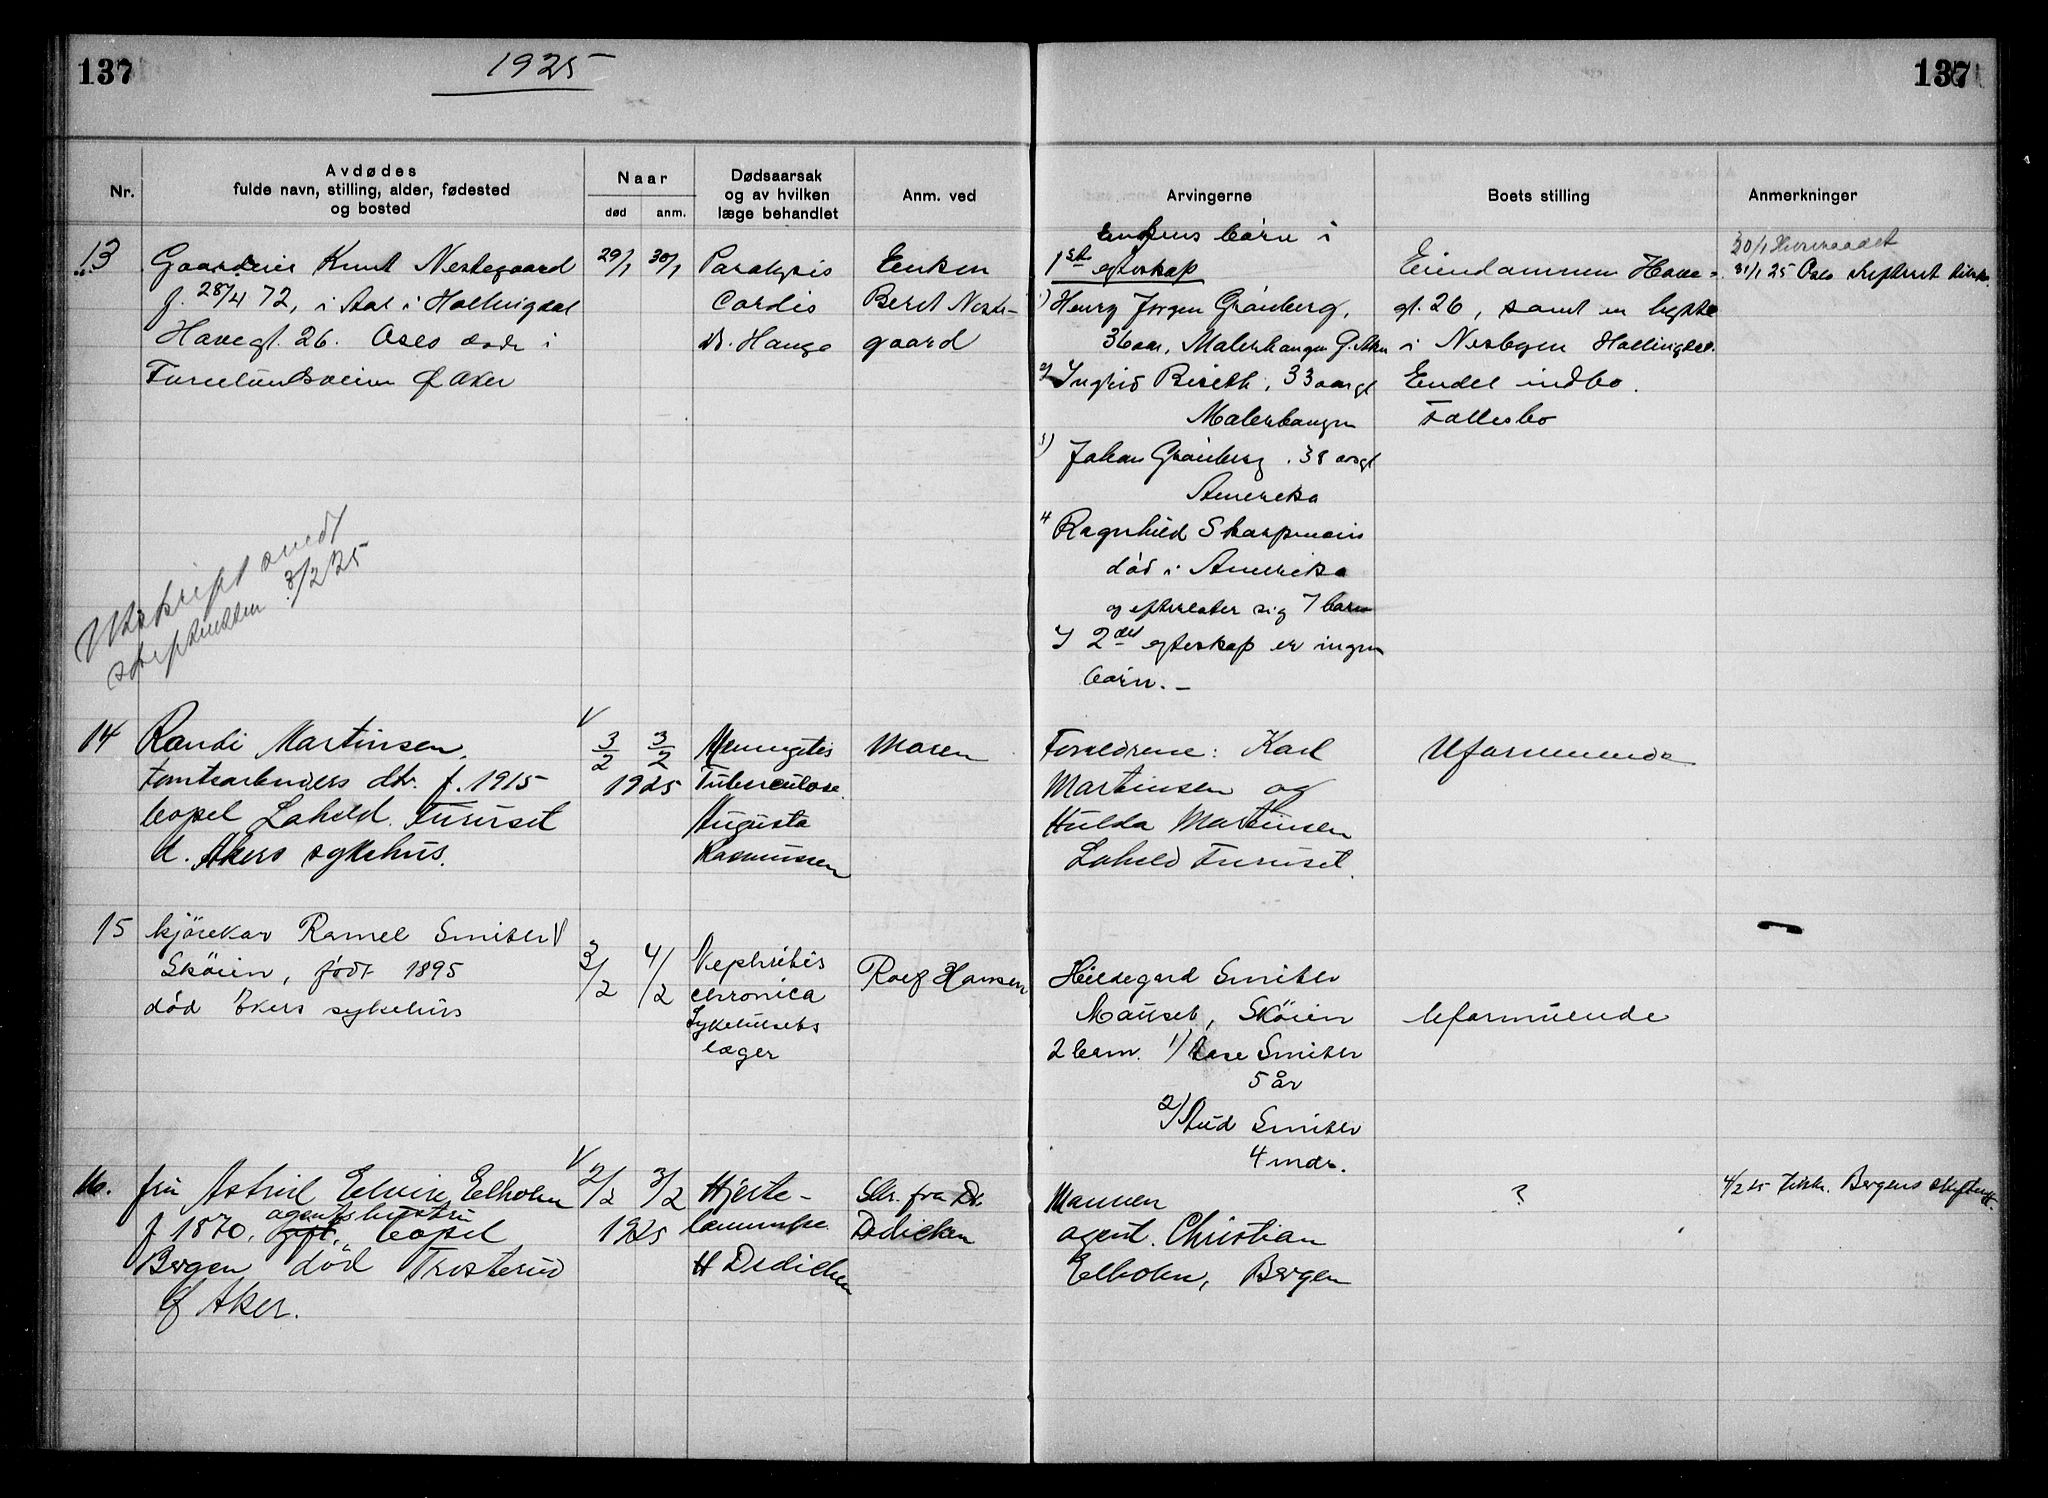 137
1925
137
Nr.
Avdødes
fulde navn, stilling, alder, fødested
og bosted
Naar
død
anm.
Dødsaarsak
og av hvilken
læge behandlet
Anm. ved
Arvingerne
Boets stilling
Anmerkninger
13
Gaardeier Knut Nestegaard
f. 28/4 72, i Aal i Hallingdal
Havegt. 26. Oslo døde i
Furulundsveien Ø Aker
29/1
30/1
Paralysis
Cordis
Dr. Hauge
Enken
Beret Neste-
gaard
Enkens børn i
1ste egteskap
1) Henry Jørgen Grønberg,
36 aar, Malerhaugen Ø. Aker
2) Ingrid Biseth, 33 aar gl
Malerhaugen
3) Johan Grønberg. 38 aar gl
Amerika
4 Ragnhild Skarpmoin
død i Amerika
og efterlater sig 7 barn
I 2det egteskap er ingen
børn. –
Eiendommen Have-
gt. 26, samt en hytte
i Nesbyen Hallingdal.
Endel indbo.
Fællesbo
30/1 Herredet
31/1 25 Oslo skifteret tilskr.
Utskrift sendt
skifteretten 3/2 25
14
Randi Martinsen,
tomtearbeiders dtr. f. 1915
bopel Loheld. Furuset
d. Akers sykehus.
V
3/2
3/2
1925
Meningitis
Tuberculose.
Augusta
Rasmussen
Moren
Foreldrene: Karl
Martinsen og
Hulda Martinsen
Loheld Furuset.
Uformuende
15
kjørekar Ramel Smiter V
Skøien, født 1895
død Akers sykehus
3/2
4/2
Nephritis
chronica
Sykehusets
læger
Rolf Hansen
Hildegard Smiter
Mauseb, Skøien
2 barn. 1) Aase Smiter
5 år
2) Aud Smiter
4 mdr.
Uformuende
16.
fru Astrid Elvire Elholm
agentshustru
f 1870, gift, bopel
Bergen død Trosterud
Ø Aker.
V
2/2
3/2
1925
Hjerte-
lammelse
H Dedichen
Skr. fra Dr.
Dedichen
Mannen
agent. Christian
Elholm, Bergen
?
4/2 25 tilskr. Bergens skifterett.